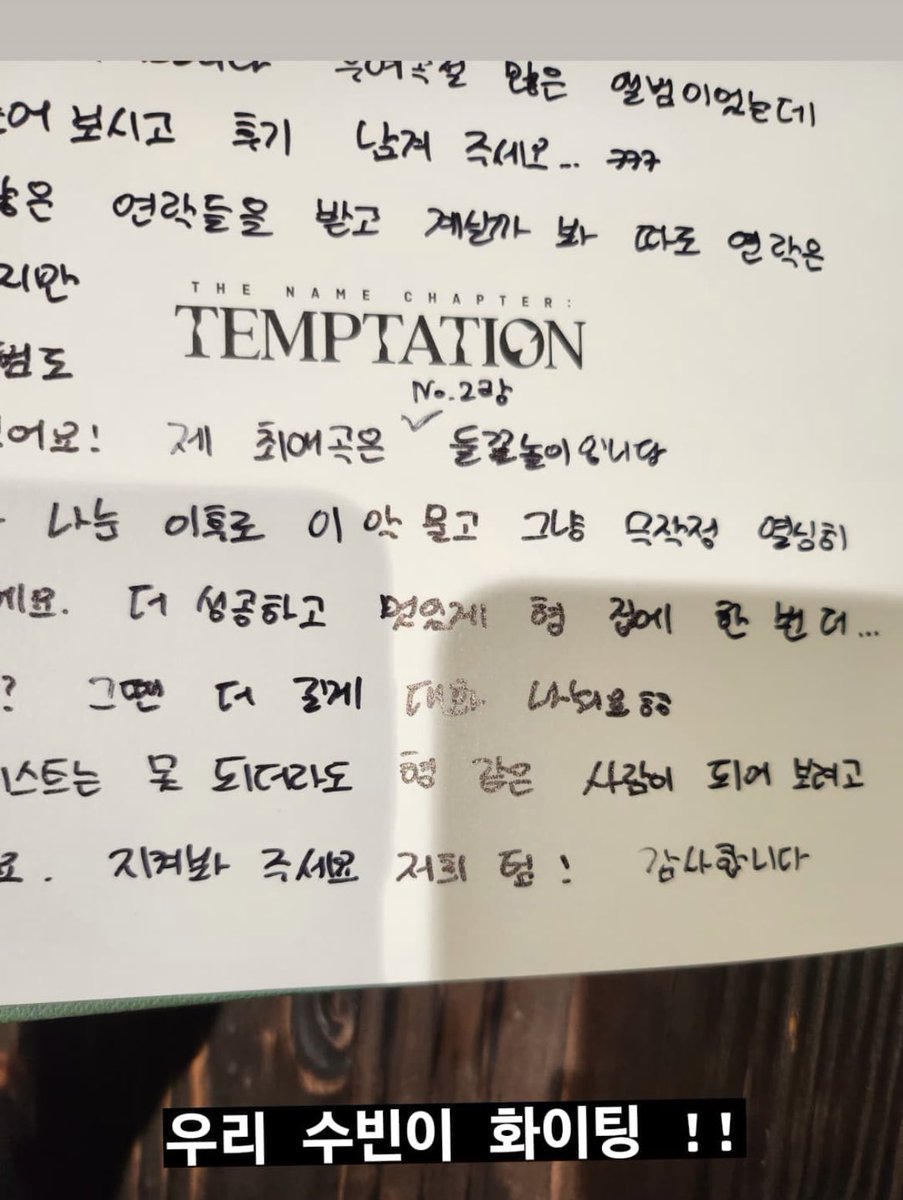 많은 앨범이었는데
보시고 후기 남겨 주세요... ㅋㅋㅋ
연락들을 받고 계실까 봐 따로 연락은
지만
THE NAME CHAPTER:
TEMPTATION
범도
No.2랑
어요! 제 최애곡은 ✓ 들꽃놀이입니다
나눈 이후로 이 악 물고 그냥 무작정 열심히
에요. 더 성공하고 멋있게 형 집에 한 번 더...
? 그땐 더 길게 대화 나눠요ㅎㅎ
스트는 못 되더라도 형 같은 사람이 되어 보려고
요. 지켜봐 주세요 저희 팀! 감사합니다
우리 수빈이 화이팅 !!